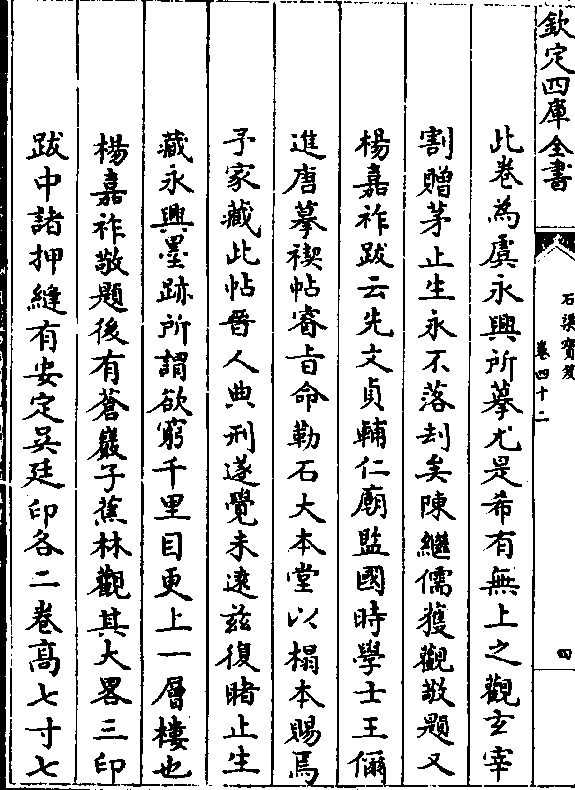 欽定四庫全書
石渠寶笈
卷四十二
四
此卷為虞永興所摹尤是希有無上之觀玄宰
割贈茅止生永不落刦矣陳繼儒獲觀敬題又
楊嘉祚跋云先文貞輔仁廟監國時學士王偁
進唐摹禊帖睿旨命勒石大本堂以榻本賜焉
予家藏此帖晉人典刑遂覺未遠兹復睹止生
藏永興墨跡所謂欲窮千里目更上一層樓也
楊嘉祚敬題後有蒼巖子蕉林觀其大畧三印
跋中諸押縫有安定吳廷印各二卷高七寸七